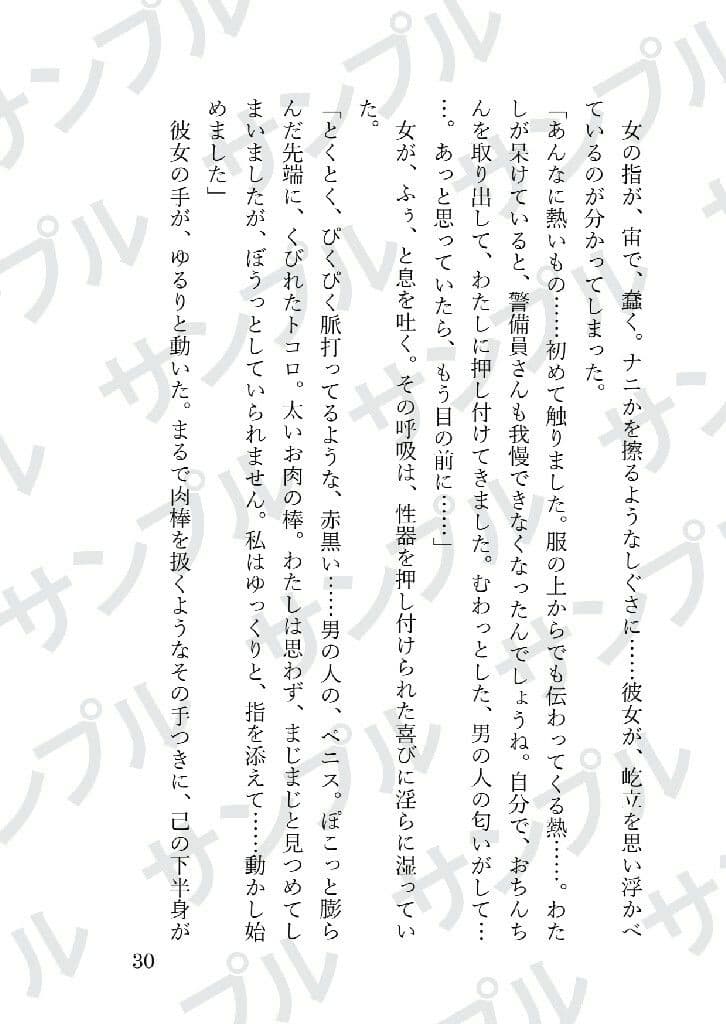 女の指が、宙で、蠢く。ナニかを擦るようなしぐさに……彼女が、屹立を思い浮かべ
ているのが分かってしまった。
「あんなに熱いもの……初めて触りました。服の上からでも伝わってくる熱……。わた
しが呆けていると、警備員さんも我慢できなくなったんでしょうね。自分で、おちんち
んを取り出して、わたしに押し付けてきました。むわっとした、男の人の匂いがして…
…。あっと思っていたら、もう目の前に……」
女が、ふぅ、と息を吐く。その呼吸は、性器を押し付けられた喜びに淫らに湿ってい
た。
「とくとく、びくびく脈打ってるような、赤黒い……男の人の、ペニス。ぽこっと膨ら
んだ先端に、くびれたトコロ。太いお肉の棒。わたしは思わず、まじまじと見つめてし
まいましたが、ぼうっとしていられません。私はゆっくりと、指を添えて……動かし始
めました」
彼女の手が、ゆるりと動いた。まるで肉棒を扱くようなその手つきに、己の下半身が
30
サンプル
サンプル
サンプル
サンプル
サンプル
サンプル
サンプル
サンプル
サンプル
サンプル
サンプル
サンプル